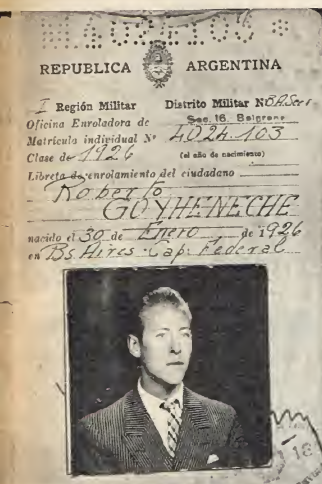 REPUBLICA ARGENTINA
I Región Militar Distrito Militar Nº
Oficina Enroladora de Sec. 16. Belgrano
Matrícula individual Nº 4024103
Clase de 1926 (el año de nacimiento)
Libreta de enrolamiento del ciudadano
Roberto
GOYHENECHE
nacido el 30 de Enero de 1926
en Bs Aires - Cap. Federal